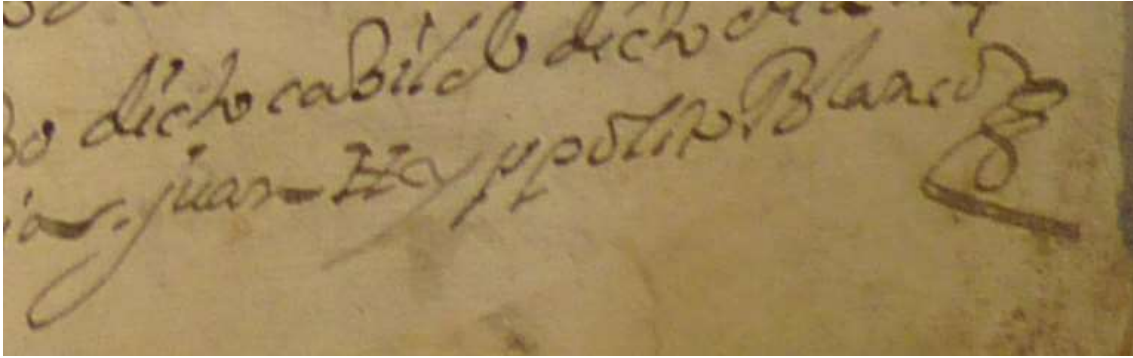 dicho cabildo dicho
juan Hyppolito Blanco